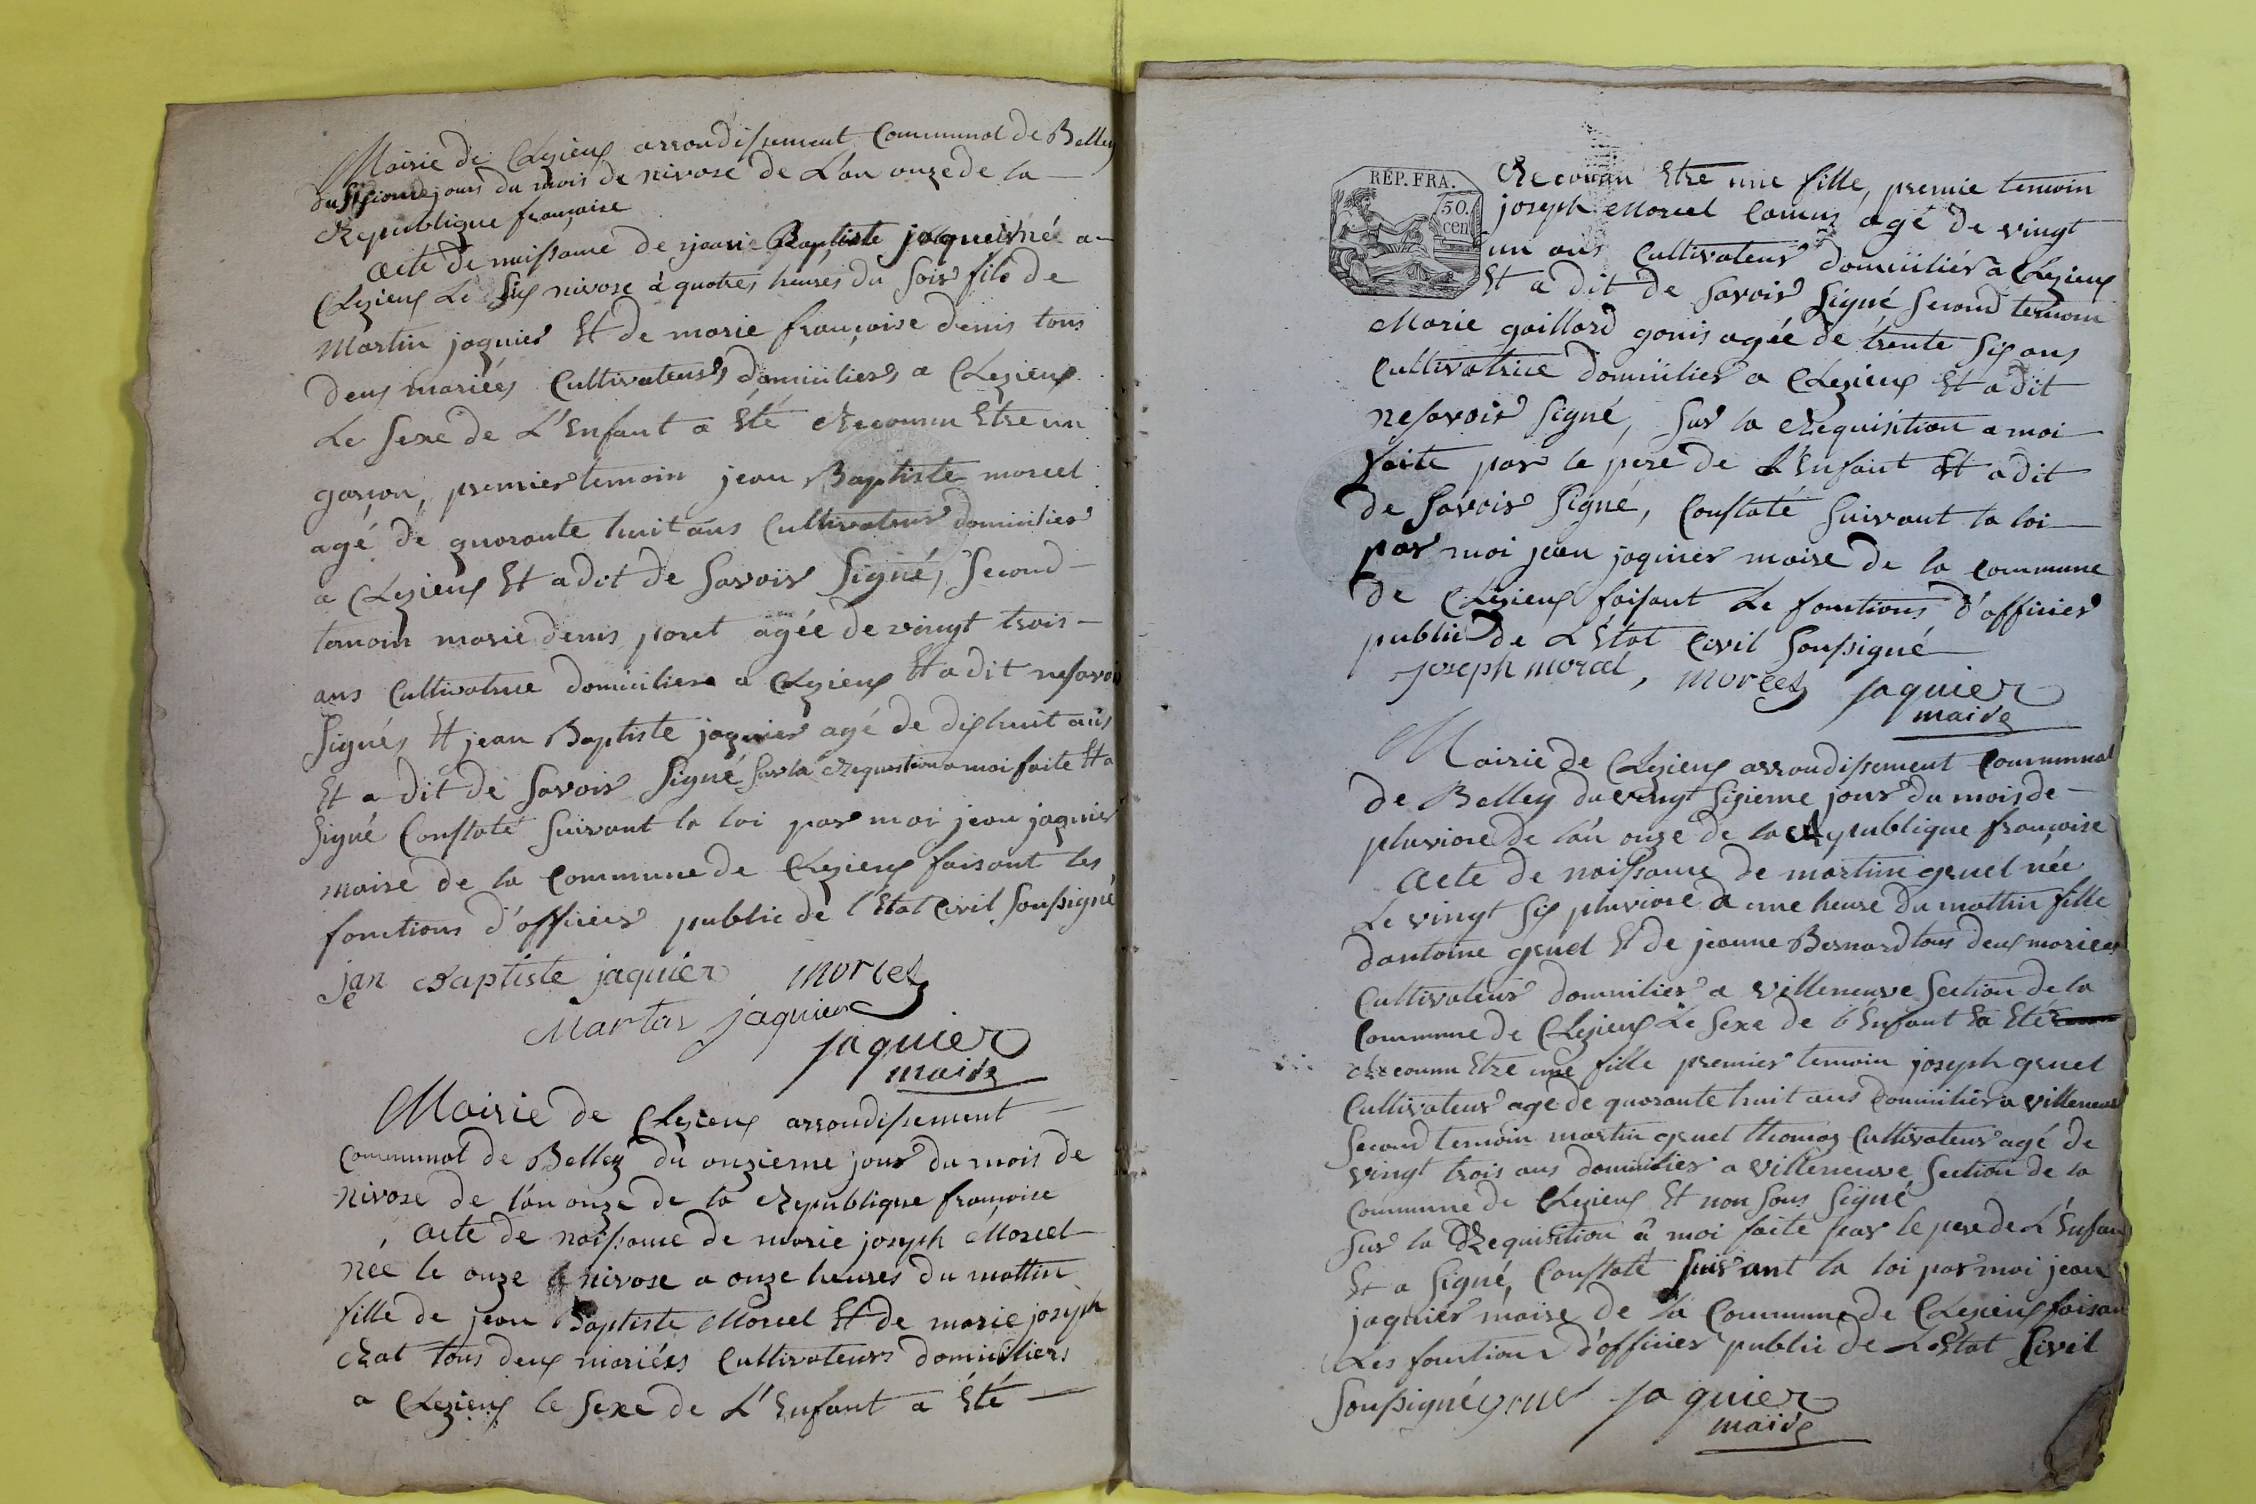 Mairie de Chezieux arrondissement Communal de Belley
du sixieme jours du mois de nivose de L'an onze de la
Republique française
Acte de naissance de jean Baptiste jaquier né a
Chezieux Le six nivose à quatres heures du soir fils de
Martin jaquier Et de marie françoise denis tous
deux mariées Cultivateurs domiciliers a Chezieux
Le sexe de L'Enfant a Eté Reconnu Etre un
garçon, premier temoin jean Baptiste morcel
agé de quarante huit ans Cultivateur domicilier
a Chezieux Et a dit de savoir signé, second
temoin marie denis poret agée de vingt trois
ans Cultivatrice domiciliere a Chezieux Et a dit ne savoir
signés Et jean Baptiste jaquier agé de dix huit ans
Et a dit de savoir signé sur la Requisition a moi faite Et a
signé Constaté suivant la loi par moi jean jaquier
maire de la Commune de Chezieux faisant les
fonctions d'officier public de l'Etat Civil soussigné
jean Baptiste jaquier morcel
Martin jaquier
jaquier
maire
Mairie de Chezieux arrondissement
Communal de Belley du onzieme jour du mois de
nivose de l'an onze de la Republique françoise
Acte de naissance de marie joseph Morcel
née le onze nivose a onze heures du mattin
fille de jean Baptiste Morcel Et de marie joseph
Rat tous deux mariées Cultivateurs domiciliers
a Chezieux le sexe de L'Enfant a Eté
REP. FRA.
50.
cen
Reconnu Etre une fille, premie temoin
joseph Morcel Camus agé de vingt
un ans Cultivateur domicilier a Chezieux
Et a dit de savoir signé second temoin
Marie gaillard gonis agée de trente six ans
Cultivatrice domicilier a Chezieux Et a dit
ne savoir signé, sur la Requisition a moi
faite par le pere de L'Enfant Et a dit
de savoir signé, Constaté suivant la loi
par moi jean jaquier maire de la Commune
de Chezieux faisant Le fonctions d'officier
public de L'Etat Civil soussigné
joseph morcel, morcel jaquier
maire
Mairie de Chezieux arrondissement Communal
de Belley du vingt sixieme jour du mois de
pluviose de l'an onze de la Republique françoise
Acte de naissance de martine gruel née
Le vingt six pluviose a une heure du mattin fille
d'antoine gruel Et de jeanne Bernard tous deux mariées
Cultivateur domicilier a villeneuve section de la
Commune de Chezieux Le sexe de l'Enfant a Eté
Reconnu Etre une fille premier temoin joseph gruel
Cultivateur agé de quarante huit ans Domicilier a villeneuve
second temoin martin gruel thomas Cultivateur agé de
vingt trois ans domicilier a villeneuve section de la
Commune de Chezieux Et non sous signé
sur la Requisition à moi faite par le pere de L'Enfan
Et a signé, Constaté suivant la loi par moi jean
jaquier maire de la Commune de Chezieux faisan
Les fonction d'officier public de L'Etat Sivil
soussigné gruel jaquier
maire